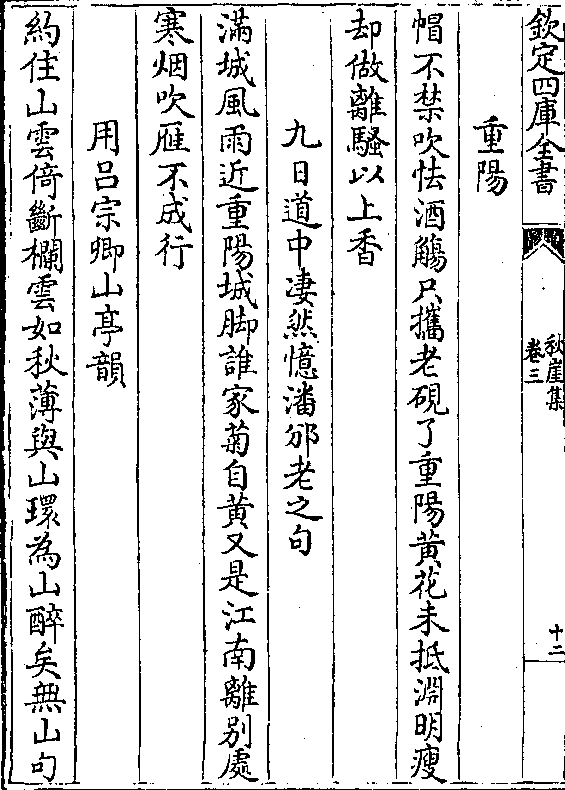 欽定四庫全書
秋崖集
卷三
十二
重陽
帽不禁吹怯酒觴只攜老硯了重陽黄花未抵淵明瘦
却做離騷以上香
九日道中凄然憶潘邠老之句
滿城風雨近重陽城脚誰家菊自黄又是江南離别處
寒烟吹雁不成行
用吕宗卿山亭韻
約住山雲倚斷欄雲如秋薄與山環為山醉矣無山句